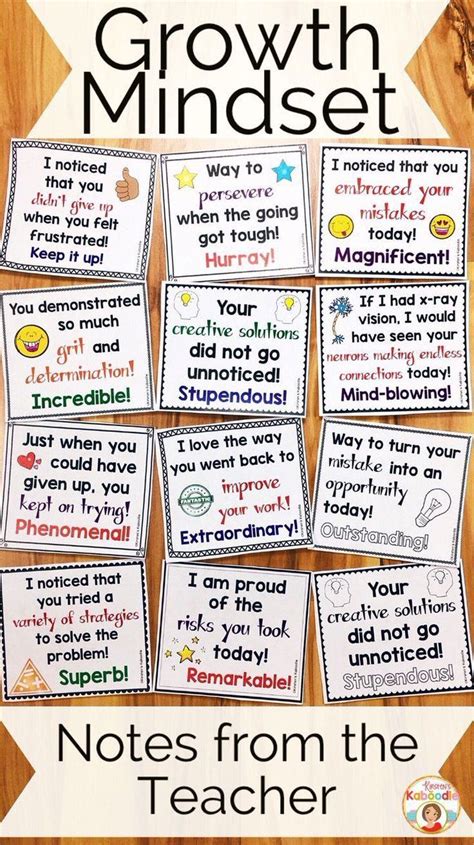 Growth
Mindset
I noticed
that you
didn't give up
when you felt
frustrated!
Keep it up!
Way to
persevere
when the going
got tough!
Hurray!
I noticed that you
embraced your
mistakes
today!
Magnificent!
You demonstrated
so much
grit and
determination!
Incredible!
Your
creative solutions
did not go
unnoticed!
Stupendous!
If I had x-ray
vision, I would
have seen your
neurons making endless
connections today!
Mind-blowing!
Just when you
could have
given up, you
kept on trying!
Phenomenal!
I love the way
you went back to
improve
your work!
FANTASTIC
Extraordinary!
Way to turn your
mistake into an
opportunity
today!
Outstanding!
I noticed that
you tried a
variety of strategies
to solve the
problem!
Superb!
I am proud
of the
risks you took
today!
Remarkable!
Your
creative solutions
did not go
unnoticed!
Stupendous!
Notes from the
Teacher
Kirsten's
Kaboodle